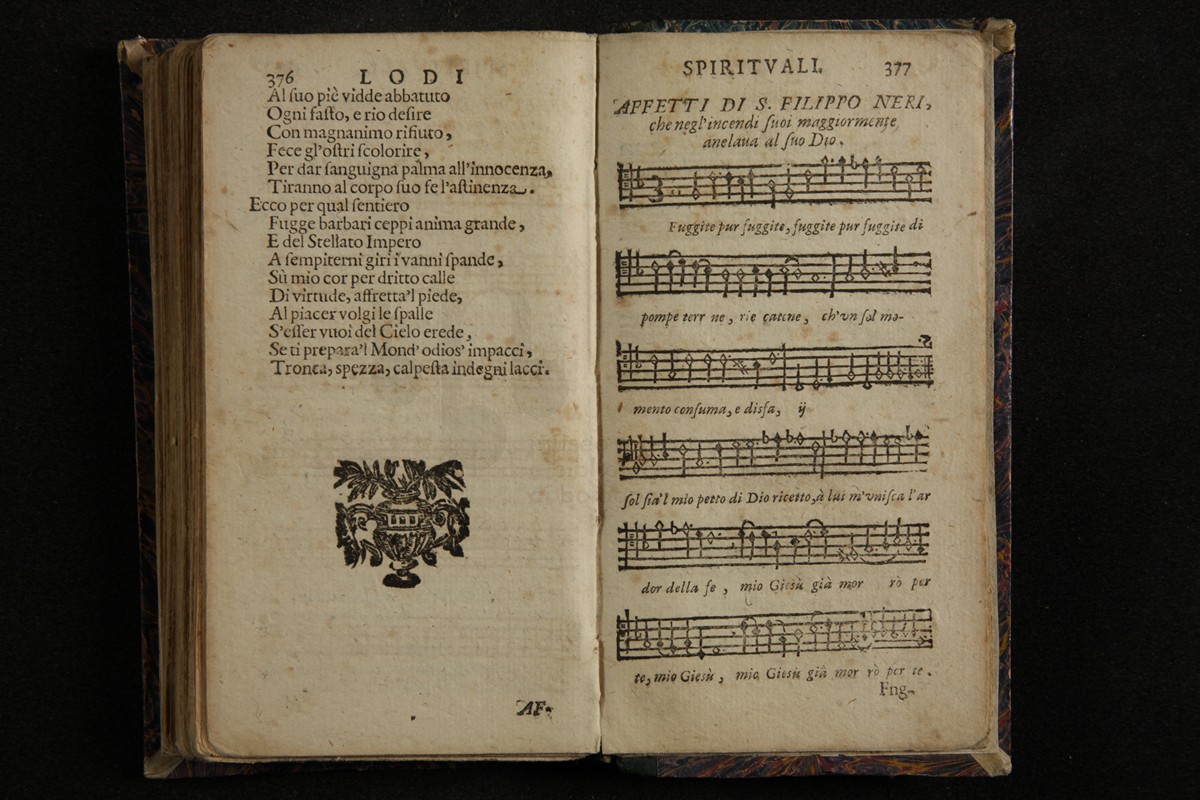 376 LODI
Al ſuo piè vidde abbatuto
Ogni faſto, e rio deſire
Con magnanimo rifiuto,
Fece gl'oſtri ſcolorire,
Per dar ſanguigna palma all'innocenza,
Tiranno al corpo ſuo fe l'aſtinenza.
Ecco per qual ſentiero
Fugge barbari ceppi anima grande,
E del Stellato Impero
A ſempiterni giri i vanni ſpande,
Sù mio cor per dritto calle
Di virtude, affretta'l piede,
Al piacer volgi le ſpalle
S'eſſer vuoi del Cielo erede,
Se ti prepara'l Mond' odioſ' impacci,
Tronca, spezza, calpeſta indegni lacci.
AF-
SPIRITVALI. 377
AFFETTI DI S. FILIPPO NERI,
che negl'incendi ſuoi maggiormente
anelaua al ſuo Dio.
Fuggite pur fuggite, fuggite pur fuggite di
pompe terr ne, rie catene, ch'vn ſol mo-
mento conſuma, e disfa, ij
ſol ſia'l mio petto di Dio ricetto, à lui m'vniſca l'ar
dor della fe, mio Giesù già mor rò per
te, mio Giesù, mio Giesù già mor rò per te.
Fng-